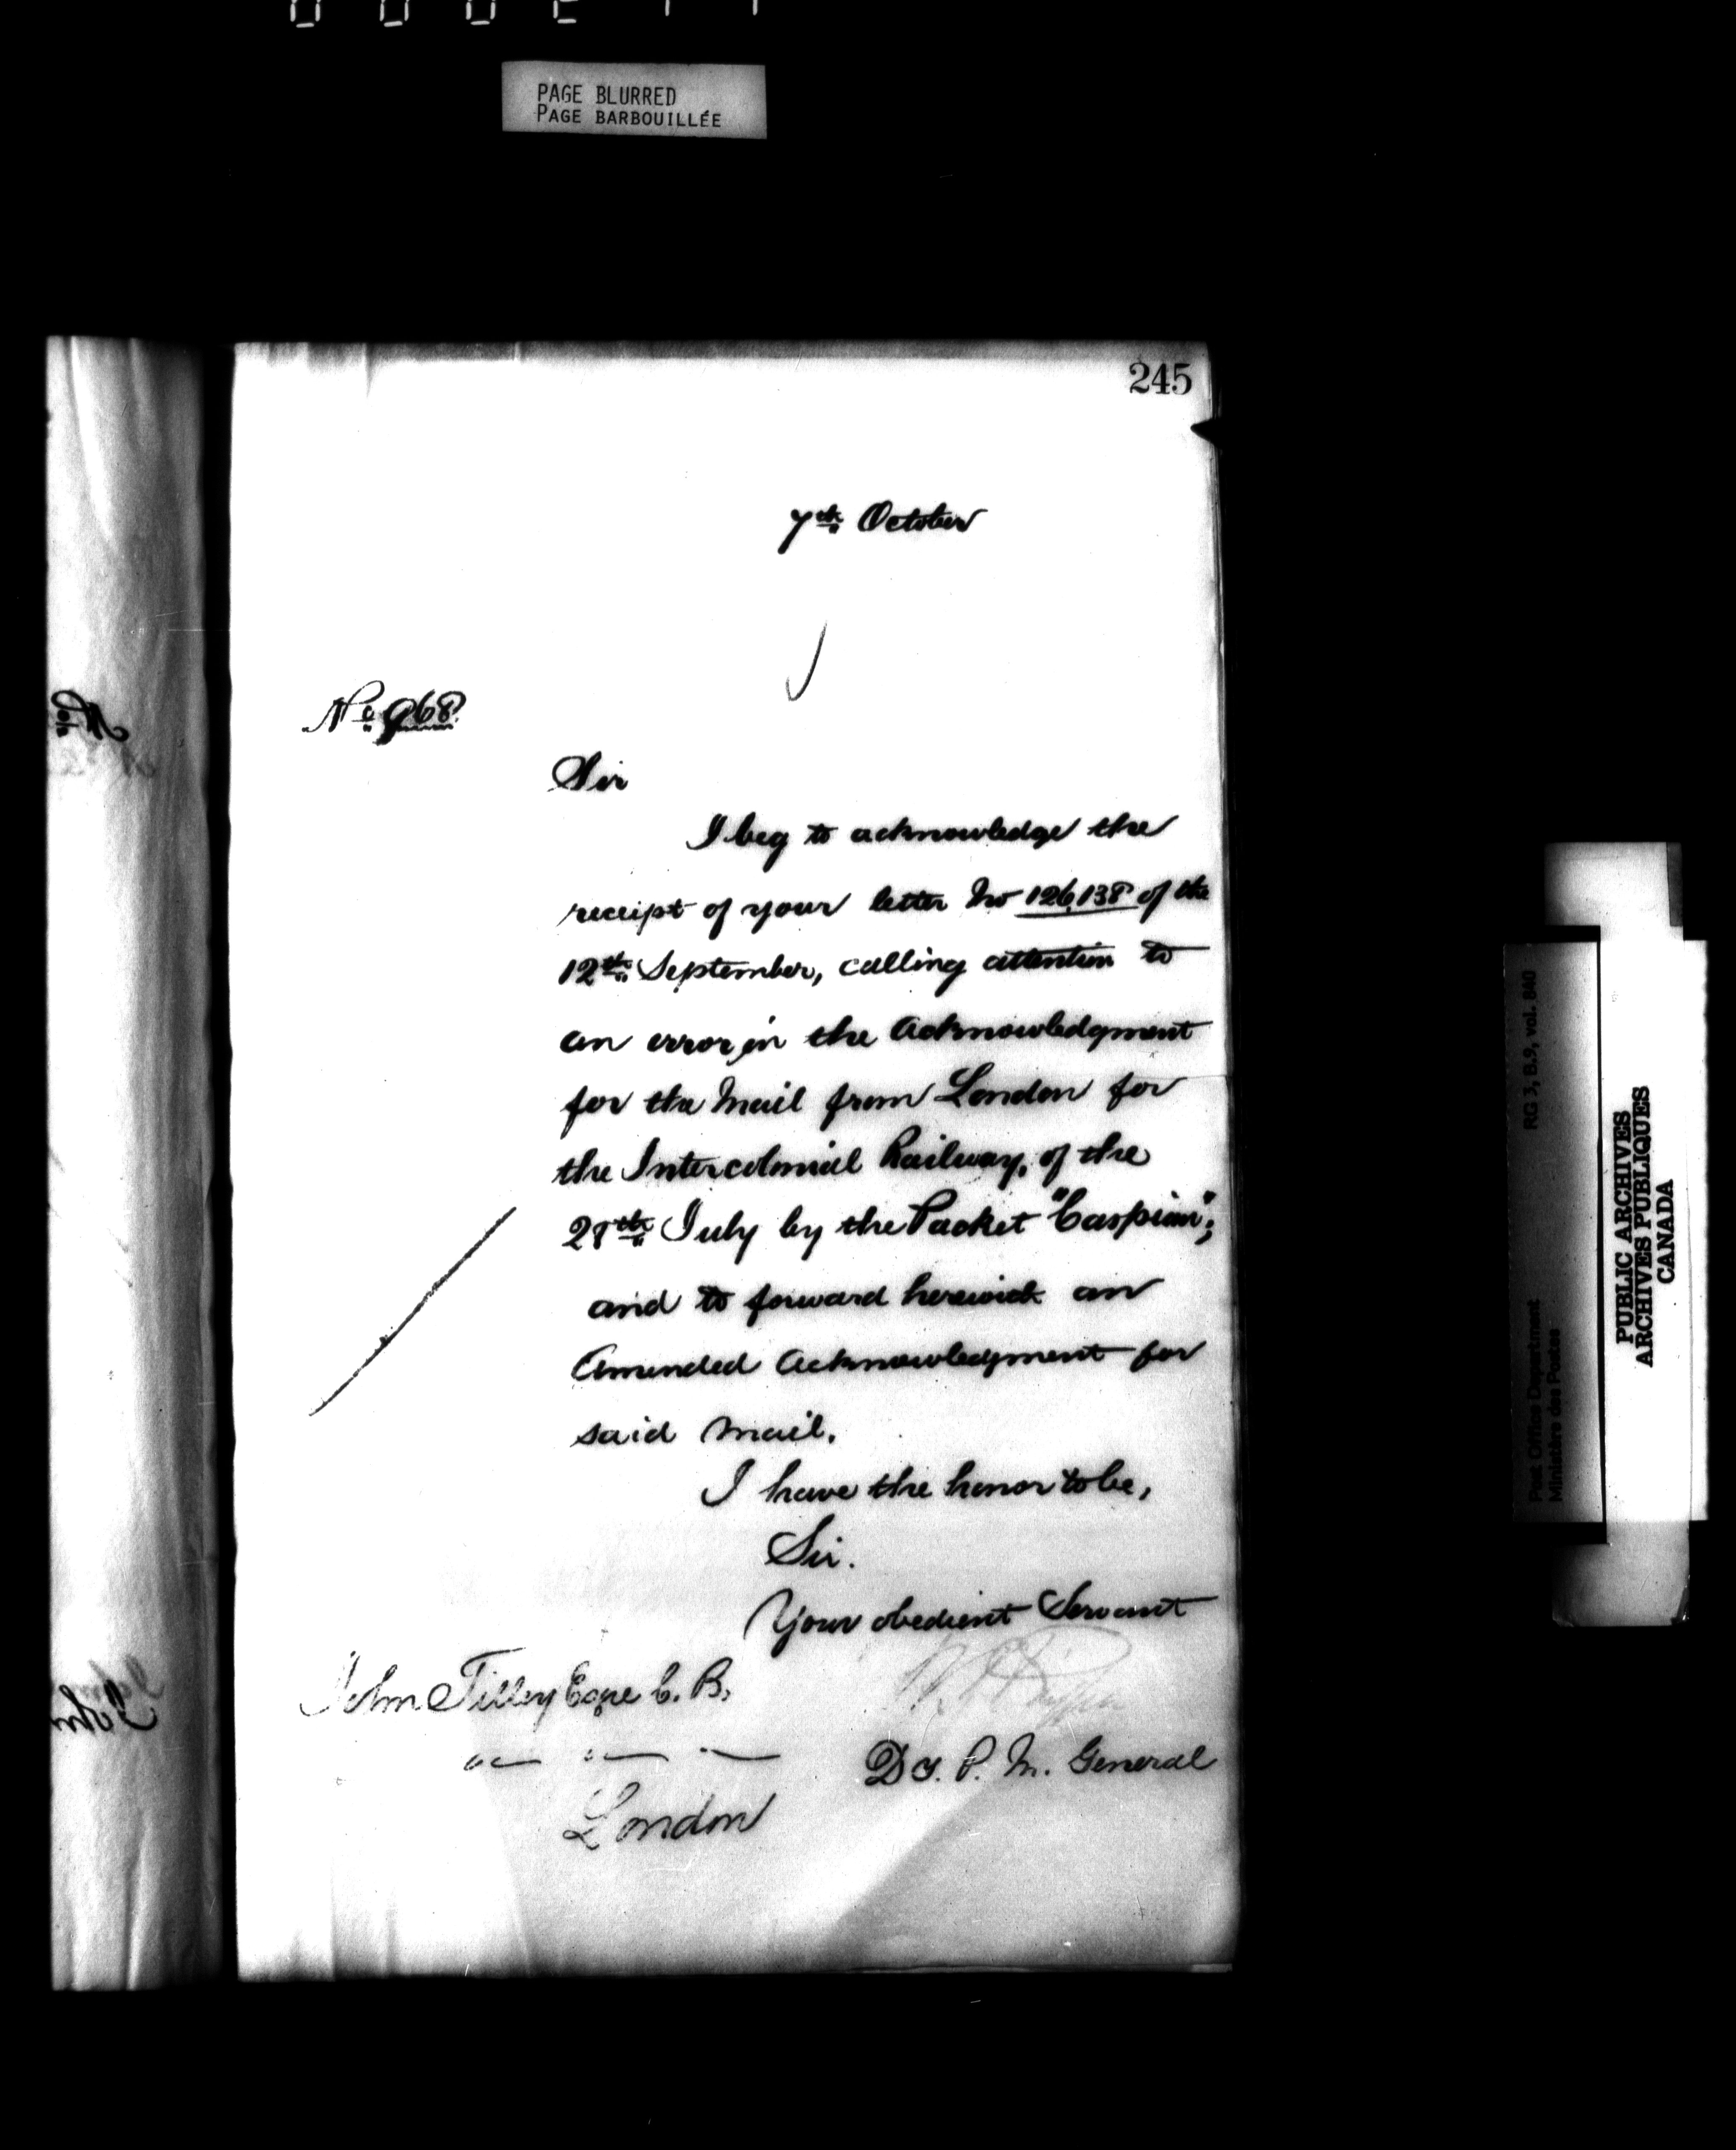 PAGE BLURRED
PAGE BARBOUILLÉE
245
7th October
No 968.
Sir
I beg to acknowledge the
receipt of your letter No 126,138 of the
12th September, calling attention to
an error in the Acknowledgment
for the Mail from London for
the Intercolonial Railway, of the
28th July by the Packet "Caspian";
and to forward herewith an
Amended Acknowledgment for
said Mail.
I have the honor to be,
Sir.
Your obedient Servant
John Tilley Esqre C. B.
Dy. P. M. General
London
RG 3, B.9, vol. 840
Post Office Department
Ministère des Postes
PUBLIC ARCHIVES
ARCHIVES PUBLIQUES
CANADA